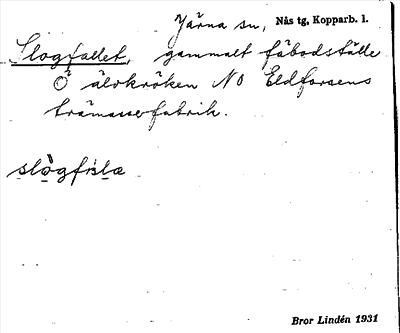 Järna sn, Nås tg, Kopparb. l.
Slogfallet, gammalt fäbodställe
Ö älvkröken NO Eldforsens
trämassefabrik.
slògfḷa
Bror Lindén 1931